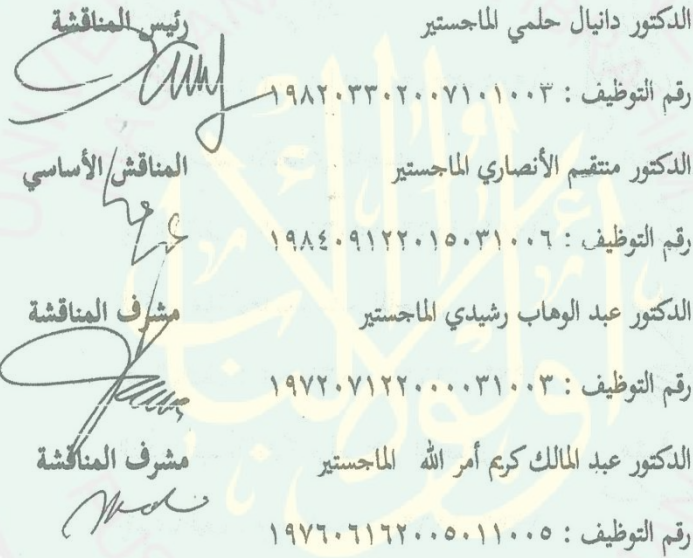 الدكتور دانيال حلمي الماجستير رئيس المناقشة
رقم التوظيف : ١٩٨٢٠٣٣٠٢٠٠٧١٠١٠٠٣
الدكتور منتقيم الأنصاري الماجستير المناقش الأساسي
رقم التوظيف : ١٩٨٤٠٩١٢٢٠١٥٠٣١٠٠٦
الدكتور عبد الوهاب رشيدي الماجستير مشرف المناقشة
رقم التوظيف : ١٩٧٢٠٧١٢٢٠٠٠٠٣١٠٠٣
الدكتور عبد المالك كريم أمر الله الماجستير مشرف المناقشة
رقم التوظيف : ١٩٧٦٠٦١٦٢٠٠٥٠١١٠٠٥